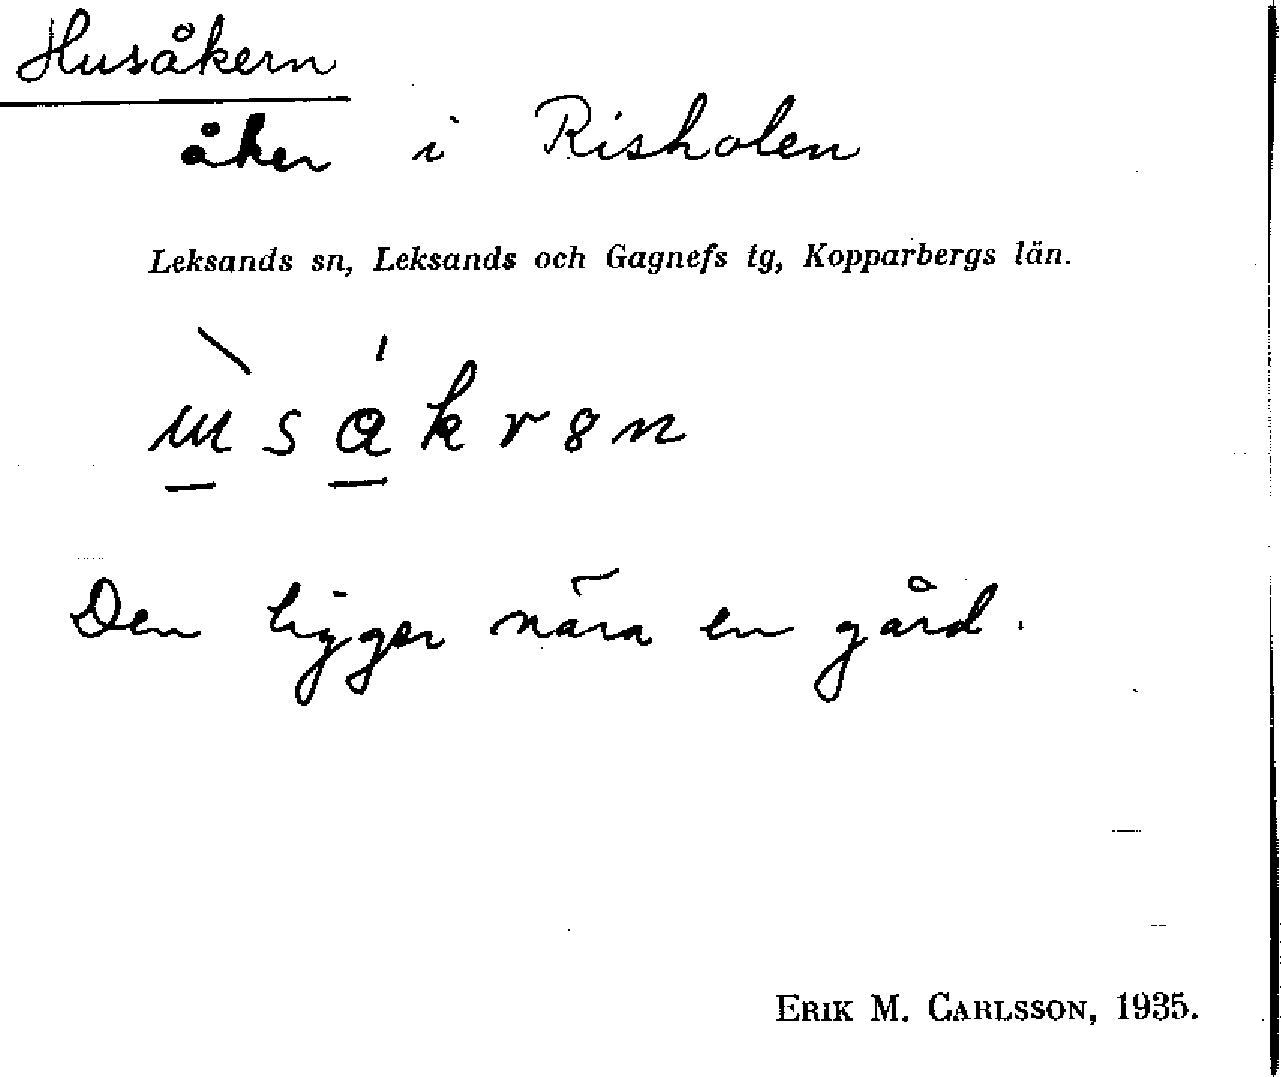 Husåkern
åker i Risholen
Leksands sn, Leksands och Gagnefs tg, Kopparbergs län.
Den ligger nära en gård.
ERIK M. CARLSSON, 1935.